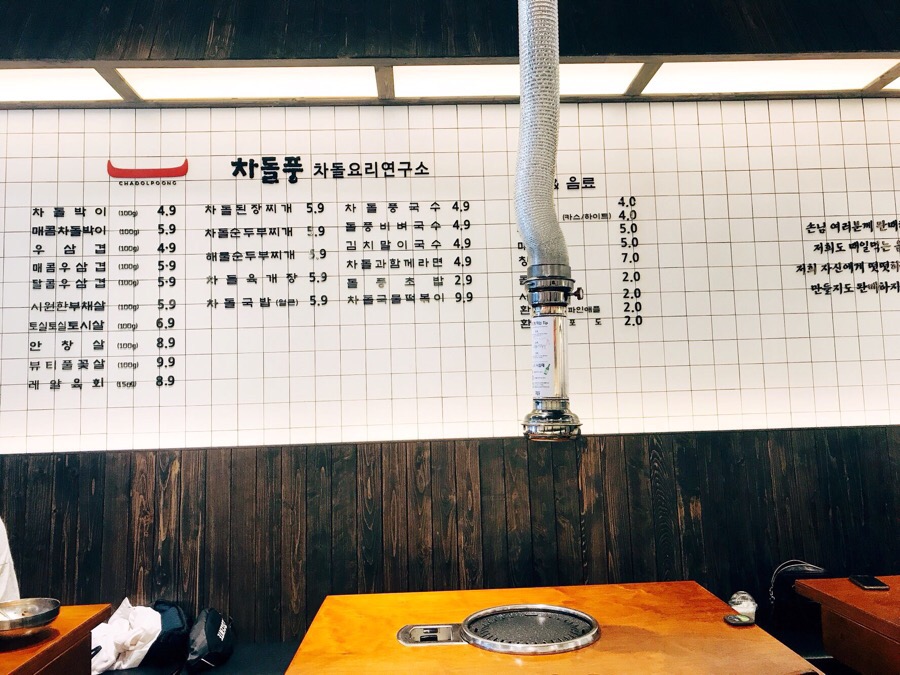 CHADOLPOONG
차돌풍 차돌요리연구소
차돌박이 (100g) 4.9
매콤차돌박이 (100g) 5.9
우삼겹 (100g) 4.9
매콤우삼겹 (100g) 5.9
달콤우삼겹 (100g) 5.9
시원한부채살 (100g) 5.9
토실토실토시살 (100g) 6.9
안창살 (100g) 8.9
뷰티풀꽃살 (100g) 9.9
레알육회 (150g) 8.9
차돌된장찌개 5.9
차돌순두부찌개 5.9
해물순두부찌개 5.9
차돌육개장 5.9
차돌국밥 (얼큰) 5.9
차돌풍국수 4.9
돌풍비빔국수 4.9
김치말이국수 4.9
차돌과함께라면 4.9
돌풍초밥 2.9
차돌국물떡볶이 9.9
& 음료
4.0
(카스/하이트) 4.0
5.0
5.0
7.0
2.0
2.0
파인애플 2.0
포도 2.0
손님 여러분께
저희도 매일먹는
저희 자신에게
만들지도